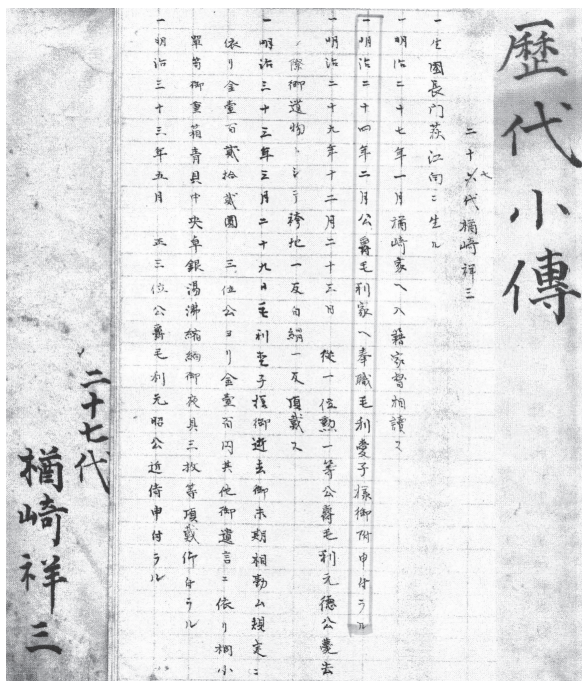 歷代小傳
二十七代 楢崎祥三
一生國長門萩江向ニ生ル
一明治二十七年一月楢崎家ヘ入籍家督相續ス
一明治二十四年二月公爵毛利家ヘ奉職毛利愛子樣御附申付ラル
一明治二十九年十二月二十三日 從一位勲一等公爵毛利元德公薨去
ノ際御遺物トシテ袴地一反白絹一反頂戴ス
一明治三十三年三月二十九日毛利愛子樣御逝去御末期相勤ム規定ニ
依リ金壹百貳拾貳圓 三位公ヨリ金壹百円其他御遺言ニ依リ桐小
單笥御重箱青貝中央卓銀湯沸縮緬御夜具三枚等頂戴仰付ラル
一明治三十三年五月 正三位公爵毛利元昭公近侍申付ラル
二十七代
楢崎祥三